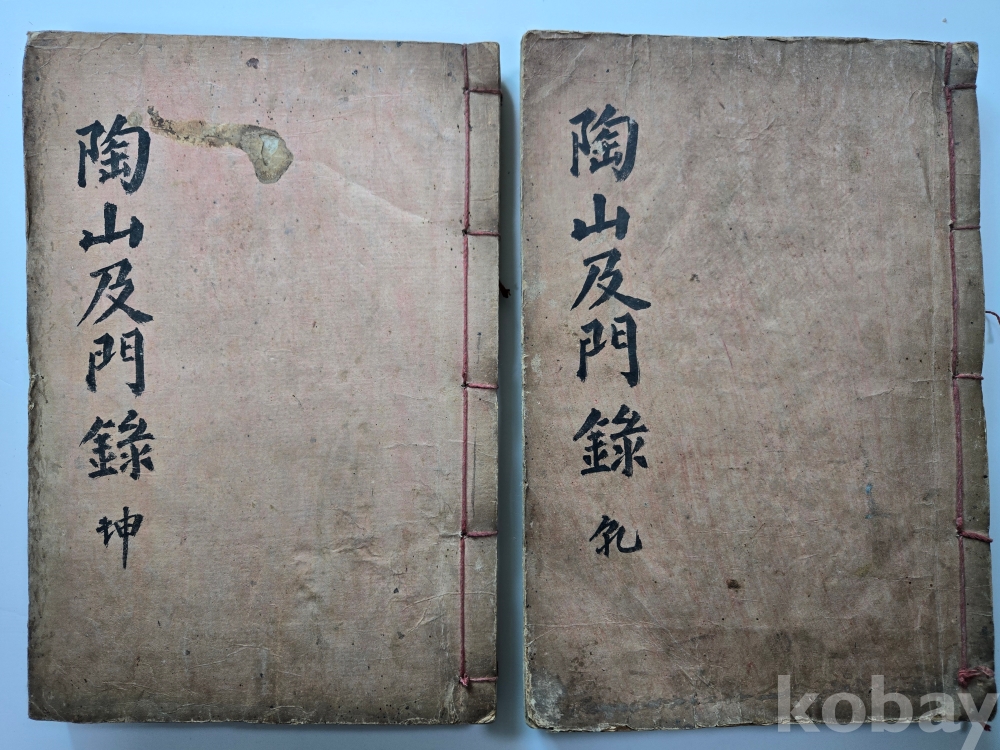 陶山及門錄 坤
陶山及門錄 乹
kobay